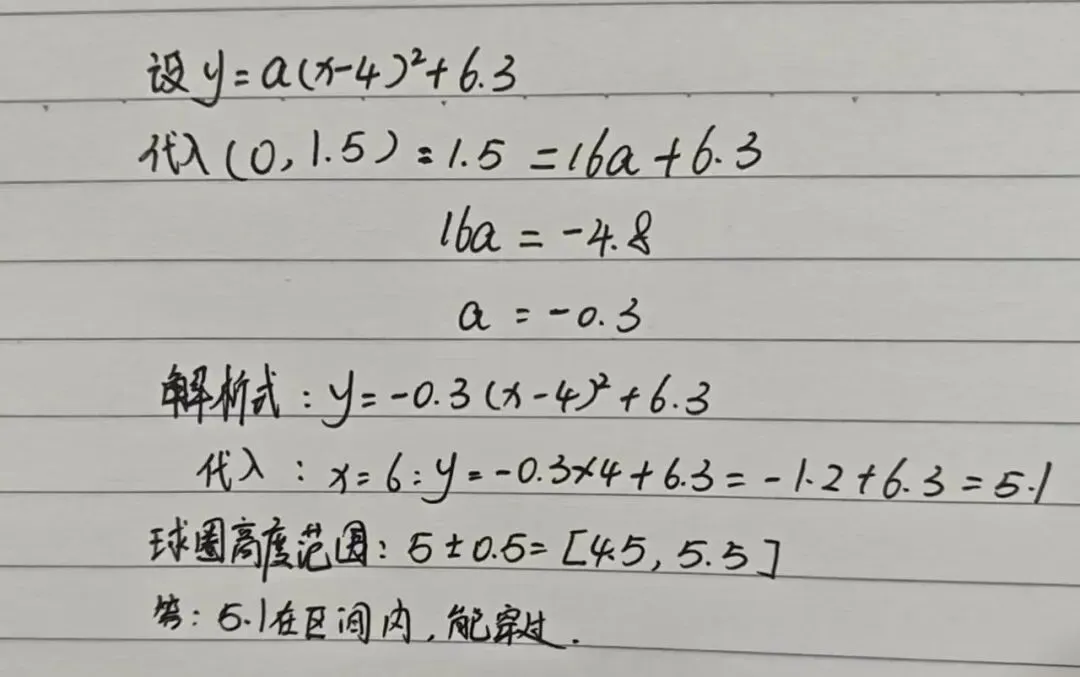 设 y=a(x-4)²+6.3
代入(0,1.5):1.5=16a+6.3
16a=-4.8
a=-0.3
解析式:y=-0.3(x-4)²+6.3
代入:x=6:y=-0.3×4+6.3=-1.2+6.3=5.1
球圈高度范围:5±0.5=[4.5,5.5]
答:5.1在区间内,能穿过.